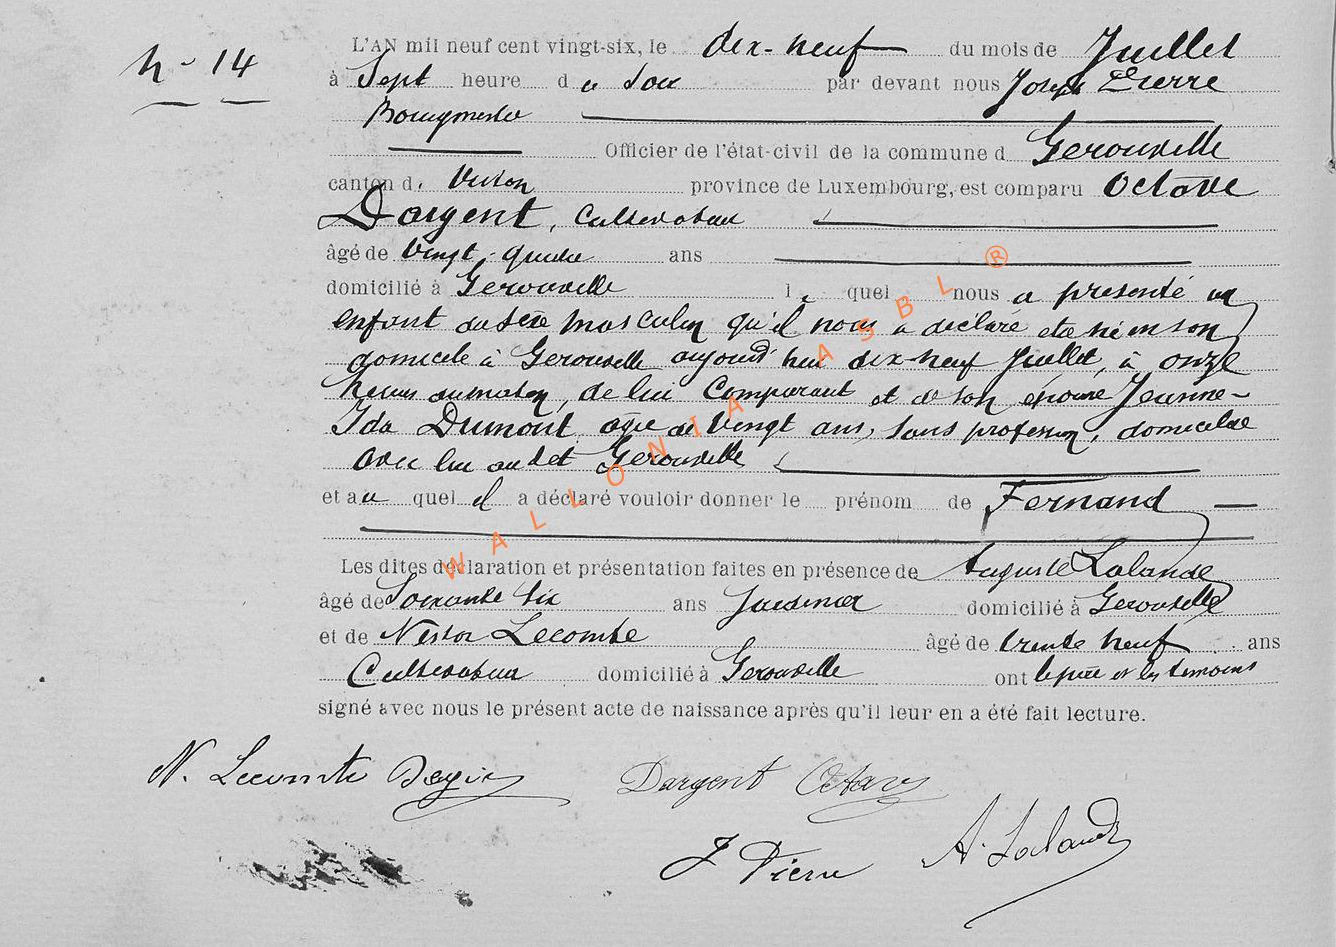 N° 14
L'AN mil neuf cent vingt-six, le dix-neuf du mois de Juillet
à Sept heure du soir par devant nous Joseph Pierre
Bourgmestre
Officier de l'état-civil de la commune d Gerouville
canton d. Virton province de Luxembourg, est comparu Octave
Dargent, Cultivateur
âgé de Vingt-quatre ans
domicilié à Gerouville lequel nous a présenté un
enfant du sexe masculin qu'il nous a déclaré etre né en son
domicile à Gerouville aujourd'hui dix-neuf Juillet, à onze
heures du matin, de lui Comparant et de son épouse Jeanne-
Ida Dumont agée de Vingt ans, sans profession, domiciliée
avec lui audit Gerouville
et au quel il a déclaré vouloir donner le prénom de Fernand
Les dites déclaration et présentation faites en présence de Auguste Lalande
âgé de Soixante six ans domicilié à Gerouville
et de Nestor Lecomte âgé de trente neuf ans
Cultivateur domicilié à Gerouville ont le père et les temoins
signé avec nous le présent acte de naissance après qu'il leur en a été fait lecture.
N. Lecomte Dargent Octave
J Pierre A. Lalande
WALLONIA ASBL ®